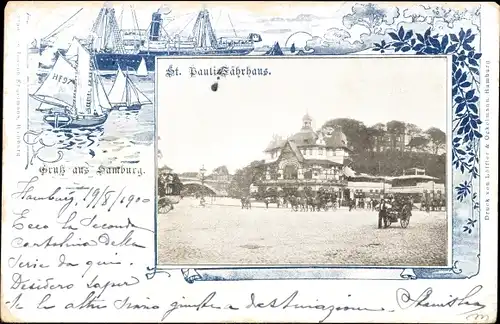 St. Pauli Fährhaus.
HF97
Gruß aus Hamburg.
Hamburg 19/8/1900
Ecco la seconda
cartolina della
serie da qui.
Desidero saper
se le altre siano giunte a destinazione.
Stanisla
Druck von Löffler & Uckelmann, Hamburg